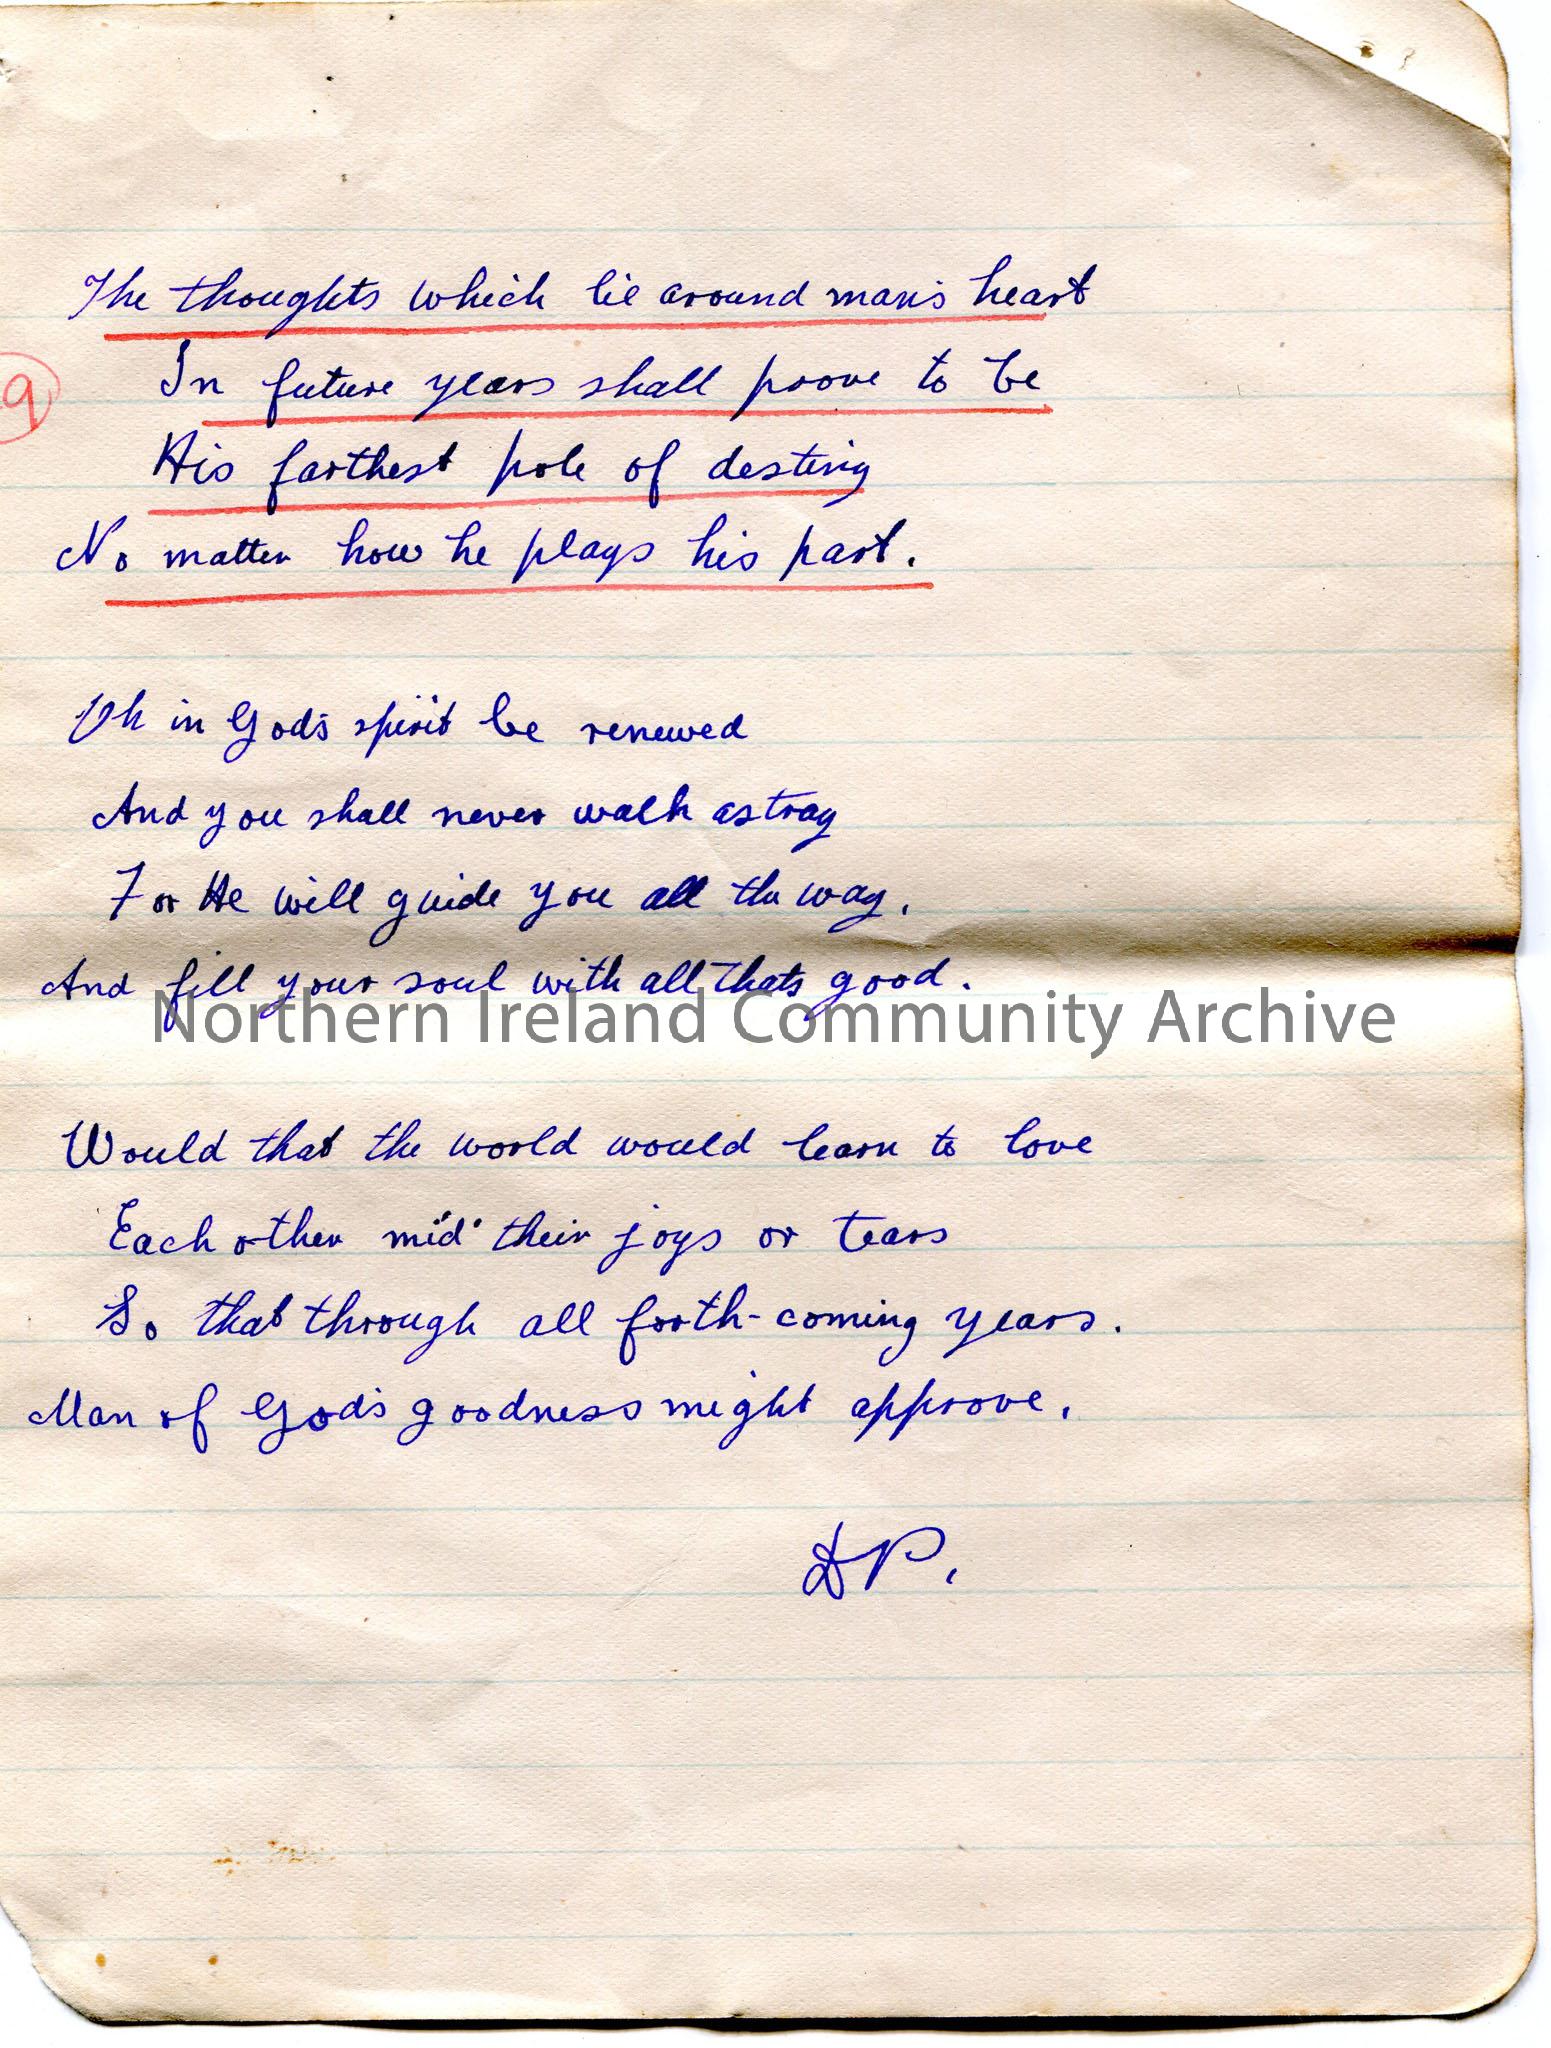 The thoughts which lie around man's heart
9
In future years shall prove to be
His farthest pole of destiny
No matter how he plays his part.
Oh in God's spirit be renewed
And you shall never walk astray
For He will guide you all the way.
And fill your soul with all thats good.
Northern Ireland Community Archive
Would that the world would learn to love
Each other mid' their joys or tears
So that through all forth-coming years.
Man of God's goodness might approve.
DP.